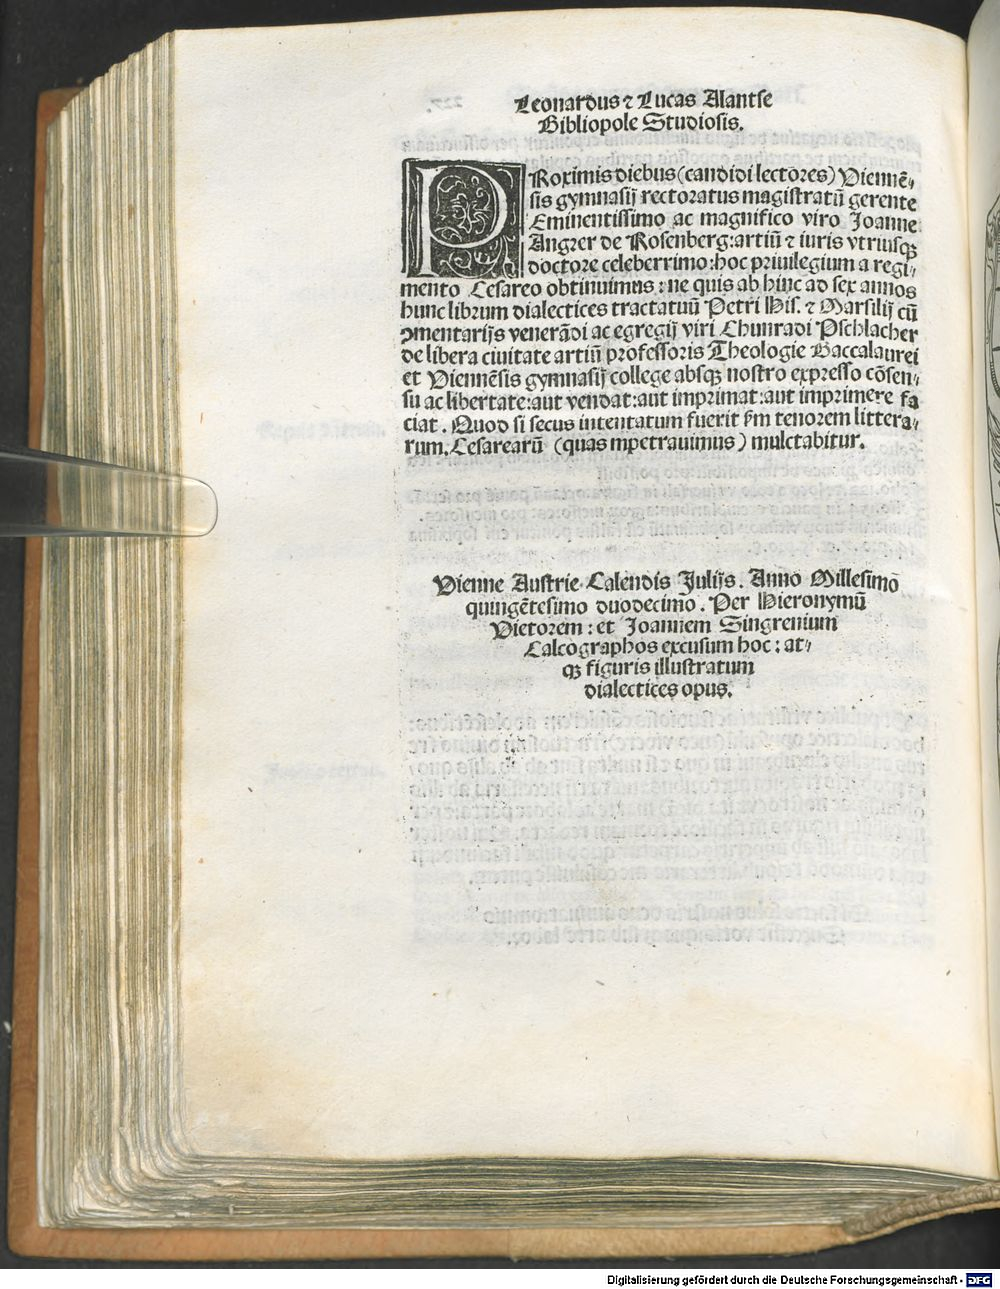 Leonardus ⁊ Lucas Alantse
Bibliopole Studiosis.
PRoximis diebus (candidi lectores) Viennē⸗
sis gymnasij rectoratus magistratū gerente
Eminentissimo ac magnifico viro Joanne
Angrer de Rosenberg: artiū ⁊ iuris vtriusqꝫ
doctore celeberrimo: hoc priuilegium a regi⸗
mento Cesareo obtinuimus: ne quis ab hinc ad sex annos
hunc librum dialectices tractatuū Petri His. ⁊ Marsilij cū
ꝯmentarijs venerādi ac egregij viri Chunradi Pschlacher
de libera ciuitate artiū professoris Theologie Baccalaurei
et Viennēsis gymnasij college absqꝫ nostro expresso cōsen⸗
su ac libertate: aut vendat: aut imprimat: aut imprimere fa
ciat. Quod si secus intentatum fuerit ẜm tenorem littera⸗
rum. Cesarearū (quas mpetrauimus) mulctabitur.
Vienne Austrie. Calendis Julijs. Anno Millesimo
quingētesimo duodecimo. Per Hieronymū
Vietorem: et Joannem Singrenium
Calcographos excusum hoc: at⸗
qꝫ figuris illustratum
dialectices opus.
Digitalisierung gefördert durch die Deutsche Forschungsgemeinschaft - DFG